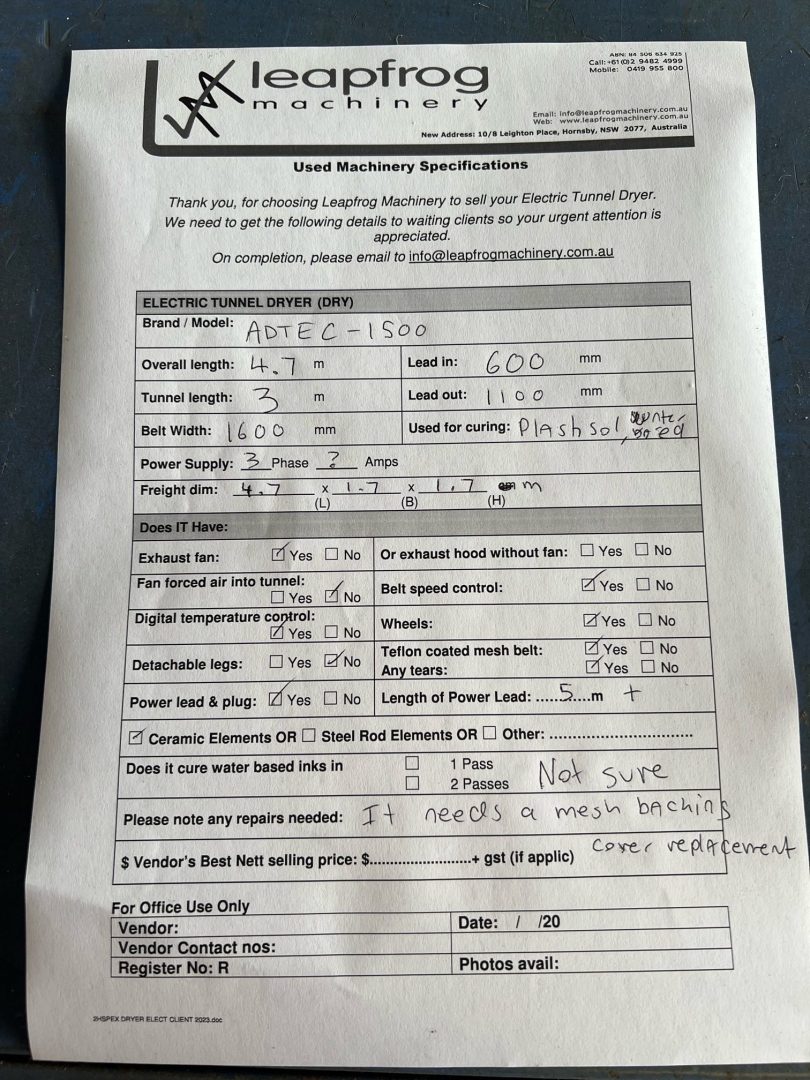 leapfrog
machinery
ABN: 84 506 634 925
Call: +61 (0)2 9482 4999
Mobile: 0419 955 800
Email: info@leapfrogmachinery.com.au
Web: www.leapfrogmachinery.com.au
New Address: 10/8 Leighton Place, Hornsby, NSW 2077, Australia
Used Machinery Specifications
Thank you, for choosing Leapfrog Machinery to sell your Electric Tunnel Dryer.
We need to get the following details to waiting clients so your urgent attention is
appreciated.
On completion, please email to info@leapfrogmachinery.com.au
ELECTRIC TUNNEL DRYER (DRY)
Brand / Model: ADTEC-1500
Overall length: 4.7 m Lead in: 600 mm
Tunnel length: 3 m Lead out: 1100 mm
Belt Width: 1600 mm Used for curing: Plashsol,
Power Supply: 3 Phase ? Amps
Freight dim: 4.7 x 1.7 x 1.7 m
(L) (B) (H)
Does IT Have:
Exhaust fan: ☑ Yes ☐ No Or exhaust hood without fan: ☐ Yes ☐ No
Fan forced air into tunnel:
☐ Yes ☑ No Belt speed control: ☑ Yes ☐ No
Digital temperature control:
☑ Yes ☐ No Wheels: ☑ Yes ☐ No
Detachable legs: ☐ Yes ☑ No Teflon coated mesh belt: ☑ Yes ☐ No
Any tears: ☑ Yes ☐ No
Power lead & plug: ☑ Yes ☐ No Length of Power Lead: ......5....m +
☑ Ceramic Elements OR ☐ Steel Rod Elements OR ☐ Other: ................................
Does it cure water based inks in ☐ 1 Pass
☐ 2 Passes Not sure
Please note any repairs needed: It needs a mesh backing
cover replacement
$ Vendor's Best Nett selling price: $........................+ gst (if applic)
For Office Use Only
Vendor: Date: / /20
Vendor Contact nos:
Register No: R Photos avail:
2HSPEX.DRYER ELECT CLIENT 2023.doc